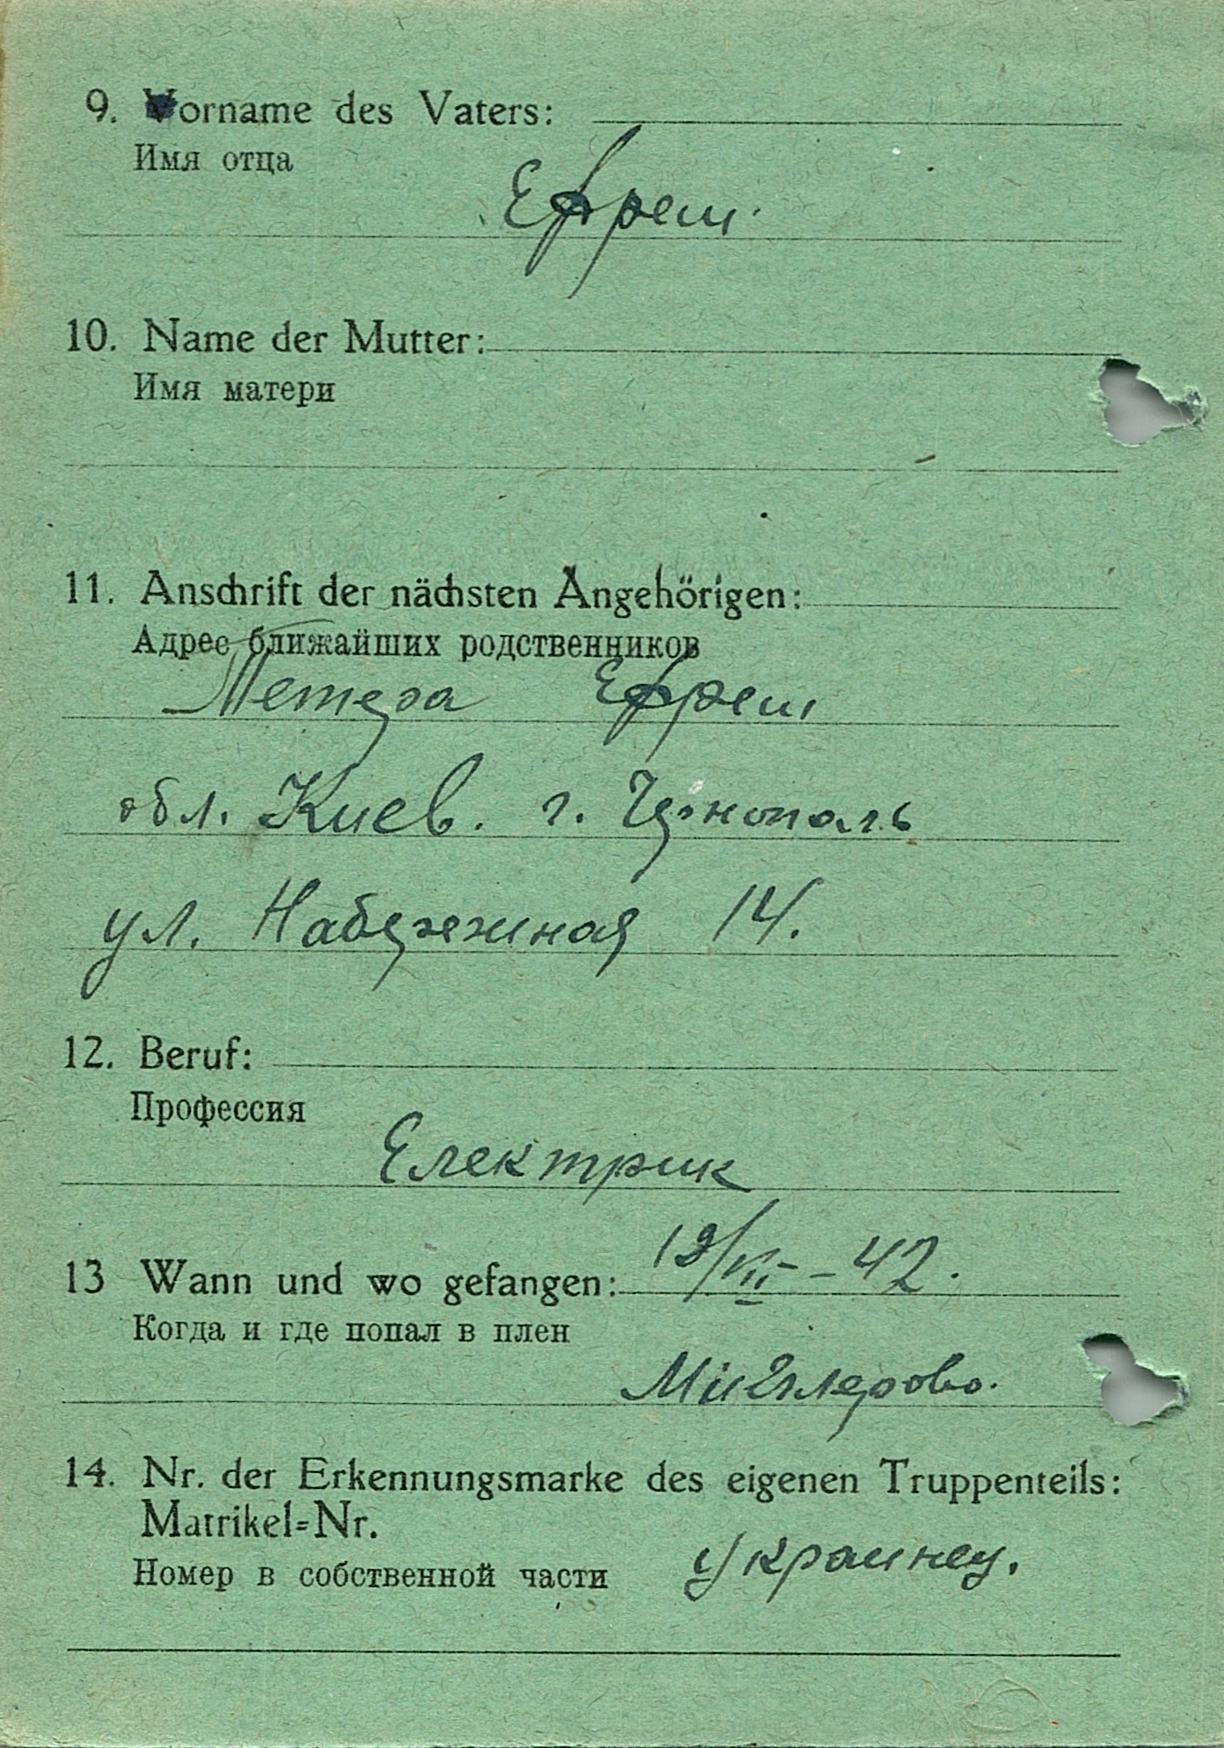 9. Vorname des Vaters:
Имя отца
Ефрем.
10. Name der Mutter:
Имя матери
11. Anschrift der nächsten Angehörigen:
Адрес ближайших родственников
Ефрем
обл. Киев. г.
ул. 14.
12. Beruf:
Профессия
Електрик
13 Wann und wo gefangen: - 42.
Когда и где попал в плен
14. Nr. der Erkennungsmarke des eigenen Truppenteils:
Matrikel=Nr.
Номер в собственной части
украинец.